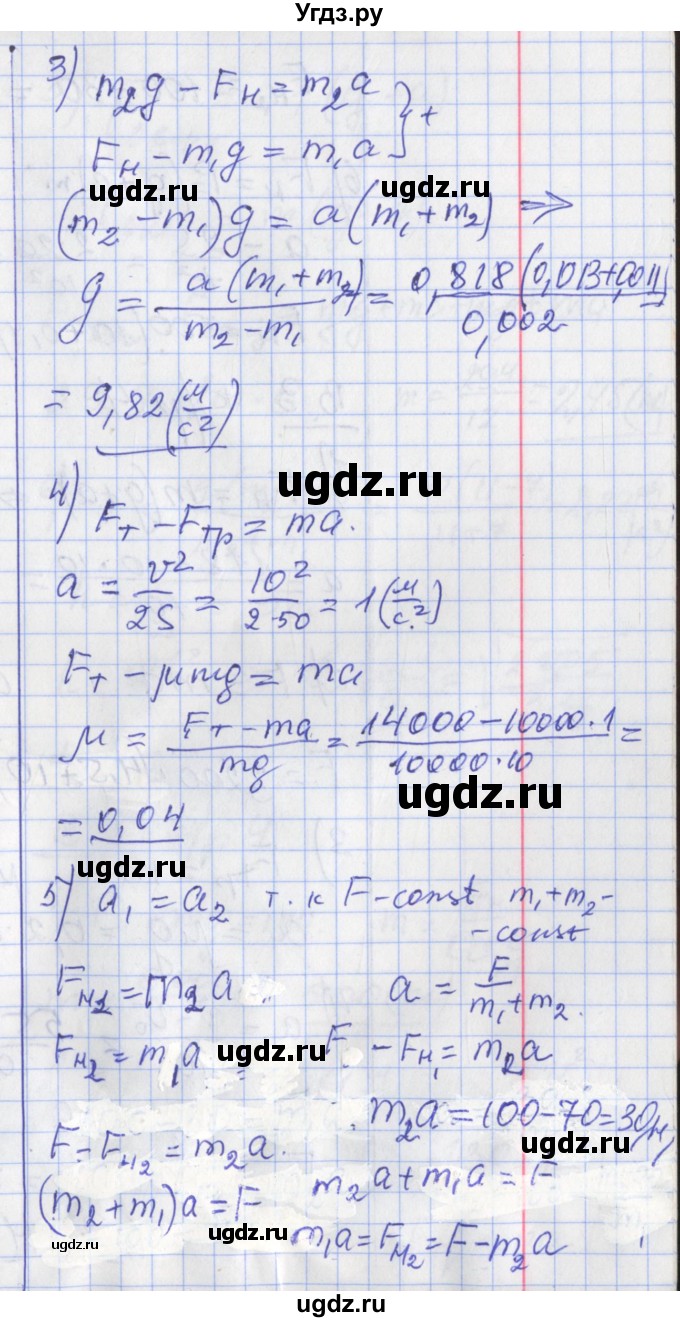 Угдз.ру
3) m₂g − Fн = m₂a } +
Fн − m₁g = m₁a
ugdz.ru ugdz.ru
(m₂ − m₁)g = a(m₁ + m₂) ⇒
g = a(m₁+m₂)/(m₂ − m₁) = 0,818(0,013+0,011)/0,002 =
= 9,82 (м/с²)
ugdz.ru
4) Fт − Fтр = ma.
a = v²/2S = 10²/2·50 = 1 (м/с²)
ugdz.ru
Fт − μmg = ma
μ = (Fт − ma)/mg = (14000 − 10000·1)/10000·10 =
ugdz.ru
= 0,04
ugdz.ru
5) a₁ = a₂ т.к F − const m₁+m₂ −
− const
Fн2 = m₂a a = F/(m₁+m₂).
Fн2 = m₁a F − Fн₁ = m₂a
ugdz.ru
m₂a = 100 − 70 = 30(н)
F − Fн2 = m₂a.
ugdz.ru
m₂a + m₁a = F
(m₂ + m₁)a = F
ugdz.ru
m₁a = Fн2 = F − m₂a
ugdz.ru
ugdz.ru